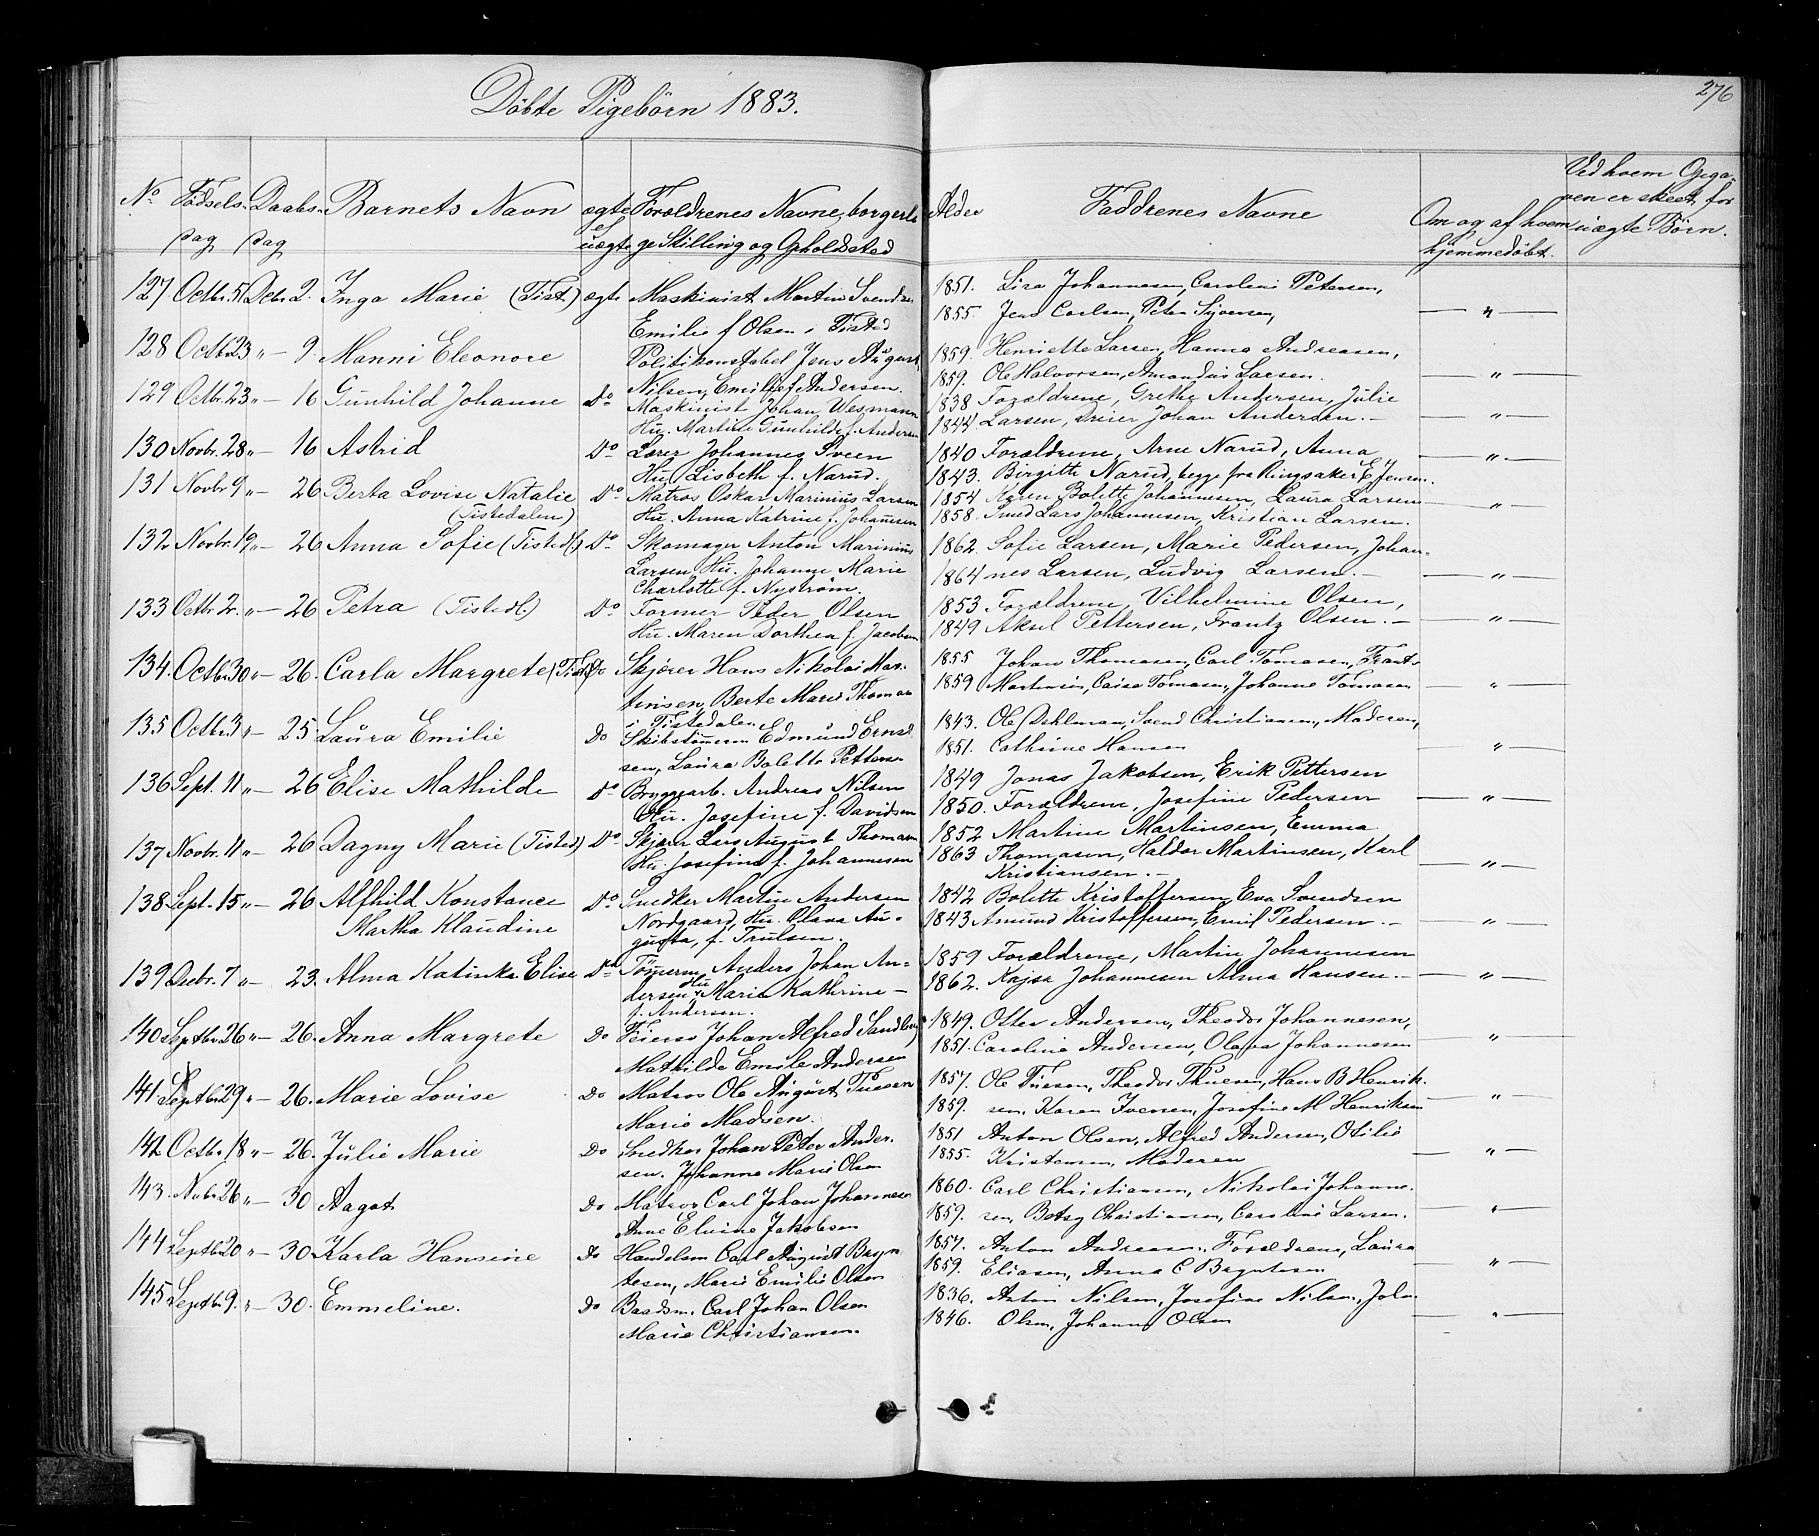 Döbte Pigebörn 1883.
276
No Fødsels- Daabs- Barnets Navn ægte Forældrenes Navne, borgerli Alder Faddrenes Navne Om og af hvem Ved hvem Opga-
dag dag uægte ge Stilling og Opholdsted hjemmedöbt. ven er skeet for
uægte Börn.
127 Octbr. 5 Dcbr 2. Inga Marie (Tist.) ægte Maskinist Martin Svendsen 1851. Lisa Johannesen, Caroline Petersen,
Emilie f Olsen i Tisted 1855. Jens Carlsen, Peter Syversen, — " —
128 Octbr 23 " — 9 Manni Eleonore Politikonstabel Jens August 1859. Henriette Larsen, Hanna Andreasen,
Nilsen, Emilie f. Andersen. 1859. Ole Halvorsen, Amandus Larsen. — " —
129 Octbr. 23 " — 16 Gunhild Johanne Do Maskinist Johan Wesmann 1838 Forældrene, Grethe Andersen, Julie
Hu. Martine Gunhilde f. Andersen 1844 Larsen, Dreier Johan Andersen. — — " —
130 Novbr. 28 " — 16 Astrid Do Lærer Johannes Sveen 1840 Forældrene, Arne Narud, Anna
Hu. Lisbeth f. Narud. 1843. Birgitte Narud, begge fra Ringsaker E. Jensen. — " —
131 Novbr 9 " — 26 Berta Lovise Natalie Do Matros Oskar Marinius Larsen 1854 Karen Bolette Johannesen, Laura Larsen
(Tistedalen) Hu. Anna Katrine f. Johannesen 1858. Smed Lars Johannesen, Kristian Larsen. — " —
132 Novbr. 19 " — 26 Anna Sofie (Tistedl.) Do Skomager Anton Marinius 1862. Sofie Larsen, Marie Pedersen, Johan-
Larsen Hu. Johanne Marie 1864 nes Larsen, Ludvig Larsen. — — " —
Charlotte f. Nyström.
133 Octbr 2. " — 26 Petra (Tistedl.) Do Former Peder Olsen 1853 Forældrene, Vilhelmine Olsen,
Hu. Maren Dorthea f. Jacobsen 1849 Aksel Pettersen, Frantz Olsen. — — " —
134. Octbr. 30 " — 26. Carla Margrete (Tisd.) Do Skjærer Hans Nikolai Mar- 1855 Johan Thomasen, Carl Tomasen, Frants
tinsen, Berte Marie Thomasen 1859 Martinsen, Caisa Tomasen, Johanne Tomasen — " —
i Tistedalen
135 Octbr. 3 " — 25 Laura Emilie Do Skibstömmerm Edmund Ernsd 1843. Ole Dahlman, Svend Christiansen, Moderen,
sen, Laura Bolette Pettersen 1851. Cathrine Hansen — " —
136 Sept. 11 " — 26 Elise Mathilde Do Bryggearb. Andreas Nilsen 1849 Jonas Jakobsen, Erik Pettersen
Hu. Josefine f. Davidsen 1850. Forældrene, Josefine Pedersen — " —
137 Novbr. 11 " — 26 Dagny Marie (Tisted) Do Skjærer Lars August Thomasen 1852 Martine Martinsen, Emma
Hu. Josefine f. Johannesen 1863 Thomasen, Haldor Martinsen, Karl — " —
Kristiansen. —
138 Sept. 15 " — 26 Alfhild Konstance Do Snedker Martin Andersen 1842 Bolette Kristoffersen, Eva Svendsen
Martha Klaudine Nordgaard, Hu. Olava Au- 1843 Amund Kristoffersen, Emil Pedersen. — — " —
gusta, f. Trulsen.
139 Decbr. 7 " — 23. Alma Katinka Elise Do Tömerm. Anders Johan An- 1859 Forældrene, Martin Johannesen
dersen Hu Marie Kathrine — 1862. Kajsa Johannesen Alma Hansen. — — " —
f. Andersen.
140 Septbr 26 " — 26. Anna Margrete Do Feierso Johan Alfred Sandberg 1849. Otter Andersen, Theodor Johannesen,
Mathilde Emilie Andersen 1851. Caroline Andersen, Olava Johannesen "
141. Septbr. 29 " — 26. Marie Lovise Do Matros Ole August Tuesen 1857. Ole Tuesen, Theodor Thuesen, Hans B Henrik-
Marie Madsen. 1859. sen, Karen Iversen, Josefine M Henriksen — " —
142 Octbr. 18 " — 26. Julie Marie Do Snedker Johan Peter Ander- 1851 Anton Olsen, Alfred Andersen, Otilie
sen. Johanne Marie Olsen 1855. Kristensen, Moderen — " —
143. Nvbr 26 " — 30 Aagot Do Matros Carl Johan Johannesen 1860. Carl Christiansen, Nikolai Johanne-
Anne Elvine Jakobsen 1859. sen, Betsy Christiansen, Caroline Larsen. — " —
144 Septbr 20 " — 30 Karla Hansine Do Handelsm Carl August Bryn 1857. Anton Andreasen. Forældrene, Laura
tesen, Marie Emilie Olsen 1859. Eliasen, Anna C Bryntesen — " —
145 Septbr 9. " — 30. Emmeline. Do Baadsm. Carl Johan Olsen 1836. Anton Nilsen, Josefine Nilsen, Joh.
Marie Christiansen. 1846. Olsen, Johanne Olsen — " —